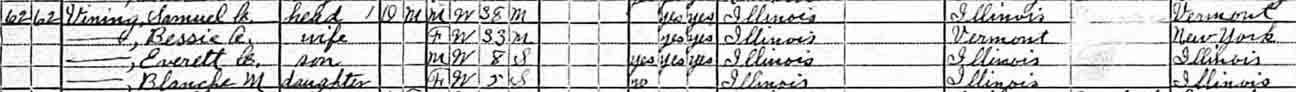 62 62 Vining, Samuel A. head 1 O M M W 38 M yes yes Illinois Illinois Vermont
—, Bessie A. wife F W 33 M yes yes Illinois Vermont New York
—, Everett A. son M W 8 S yes yes yes Illinois Illinois Illinois
—, Blanche M daughter F W 5 S no Illinois Illinois Illinois